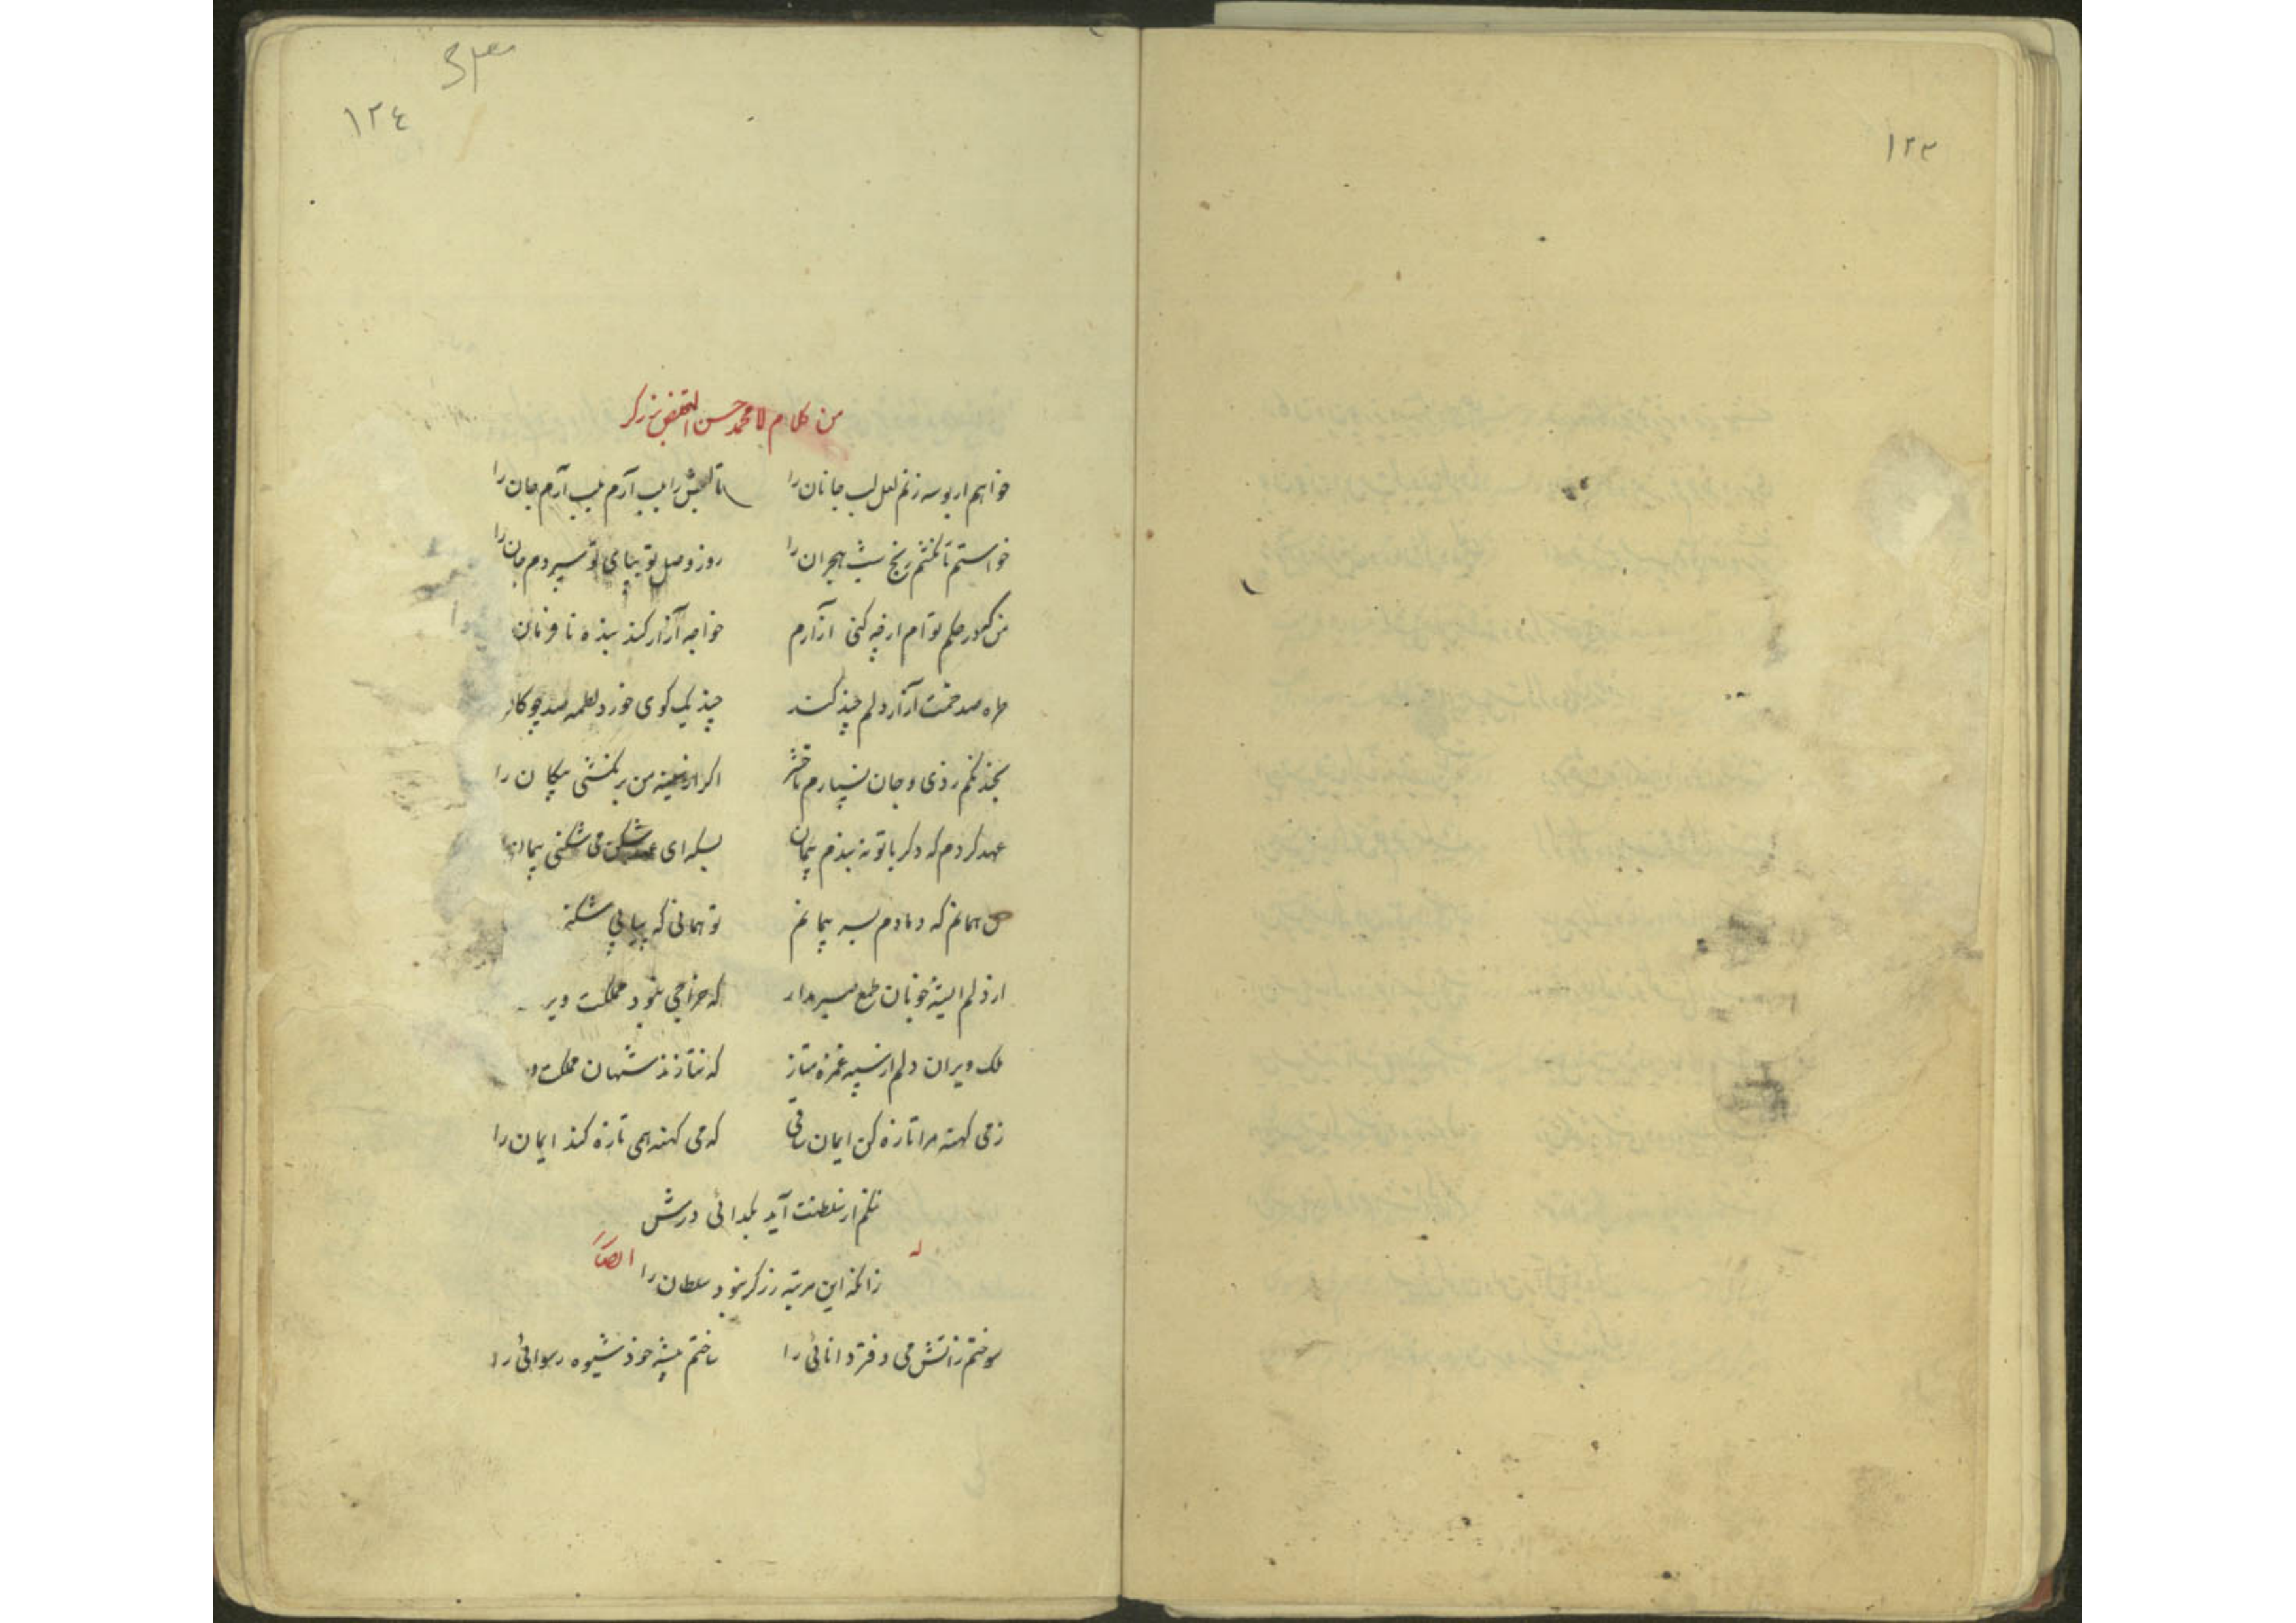 ١٢٣
١٢٤
من کلام ملا محمد حسن المتخلص بزرکر
خواهم ار بوسه زنم لعل لب جانان را تا لبش را بلب آرم بلب آرم جان را
خواستم تا نکشم رنج شب هجران را روز وصل تو بپای تو سپردم جان را
من که در حکم توام ار چه کنی آزارم خواجه آزار کند بنده نافرمان
صد آزار دلم چند کند چند یک کوی خورد لطمه صد چوکان
بخدنکم زدی و جان نسپارم تا حشر اکر از سینه من بر نکشی پیکان را
عهد کردم که دکر با تو نه بندم پیمان بسکه ای عهد شکن می شکنی پیمان را
من همانم که دمادم بسر پیمانم تو همانی که پیاپی شکنی
از دلم ای شه خوبان طمع صبر مدار که خراجی نبود مملکت ویر
ملک ویران دلم از سپه غمزه متاز که نتازند شهان مملکت و
ز می کهنه مرا تازه کن ایمان ساقی که می کهنه همی تازه کند ایمان را
ننکم از سلطنت آید بکدائی درش
زانکه این مرتبه زرکر نبود سلطان را
له ایضاً
سوختم ز آتش می دفتر دانائی را ساختم پیشه خود شیوه رسوائی را